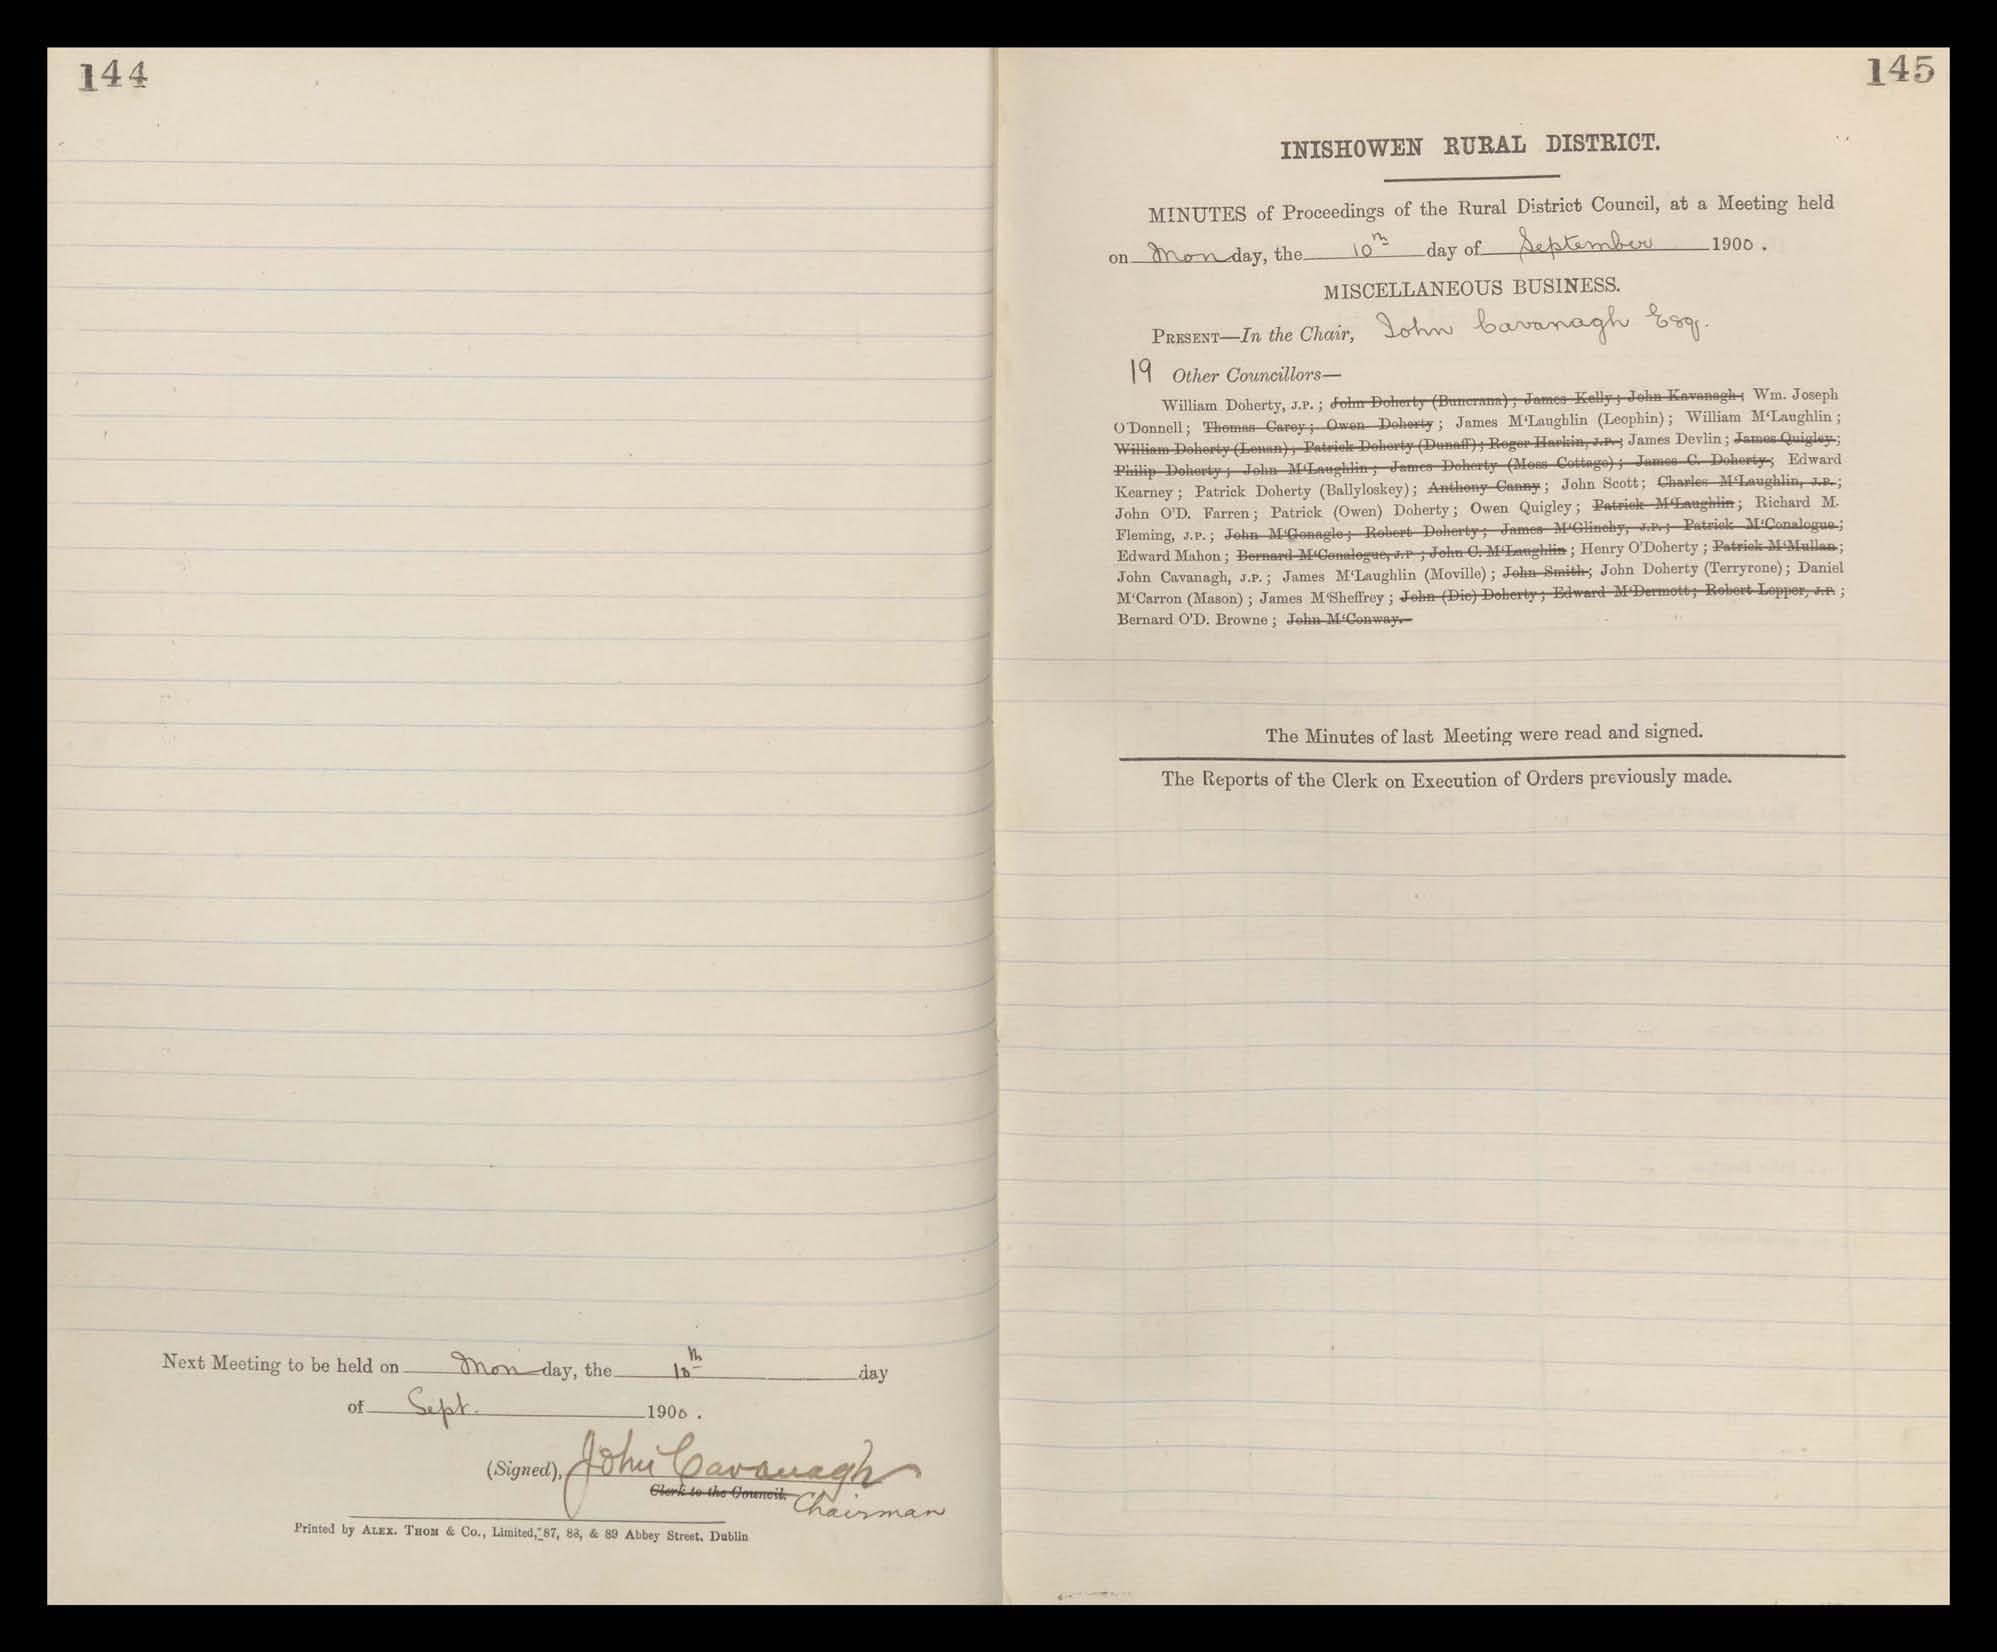 144
Next Meeting to be held on Monday, the 10th day
of Sept. 1900.
(Signed), John Cavanagh
Clerk to the Council. Chairman
Printed by ALEX. THOM & Co., Limited, 87, 88, & 89 Abbey Street, Dublin
145
INISHOWEN RURAL DISTRICT.
MINUTES of Proceedings of the Rural District Council, at a Meeting held
on Monday, the 10th day of September 1900.
MISCELLANEOUS BUSINESS.
PRESENT—In the Chair, John Cavanagh Esq.
19 Other Councillors—
William Doherty, J.P.; John Doherty (Buncrana); James Kelly; John Kavanagh; Wm. Joseph
O'Donnell; Thomas Carey; Owen Doherty; James M‘Laughlin (Leophin); William M‘Laughlin;
William Doherty (Lenan); Patrick Doherty (Dunaff); Roger Harkin, J.P.; James Devlin; James Quigley;
Philip Doherty; John M‘Laughlin; James Doherty (Moss Cottage); James C. Doherty; Edward
Kearney; Patrick Doherty (Ballyloskey); Anthony Canny; John Scott; Charles M‘Laughlin, J.P.;
John O'D. Farren; Patrick (Owen) Doherty; Owen Quigley; Patrick M‘Laughlin; Richard M.
Fleming, J.P.; John M‘Gonagle; Robert Doherty; James M‘Glinchy, J.P.; Patrick M‘Conalogue;
Edward Mahon; Bernard M‘Conalogue, J.P.; John C. M‘Laughlin; Henry O'Doherty; Patrick M‘Mullan;
John Cavanagh, J.P.; James M‘Laughlin (Moville); John Smith; John Doherty (Terryrone); Daniel
M‘Carron (Mason); James M‘Sheffrey; John (Die) Doherty; Edward M‘Dermott; Robert Lepper, J.P.;
Bernard O'D. Browne; John M‘Conway.
The Minutes of last Meeting were read and signed.
The Reports of the Clerk on Execution of Orders previously made.